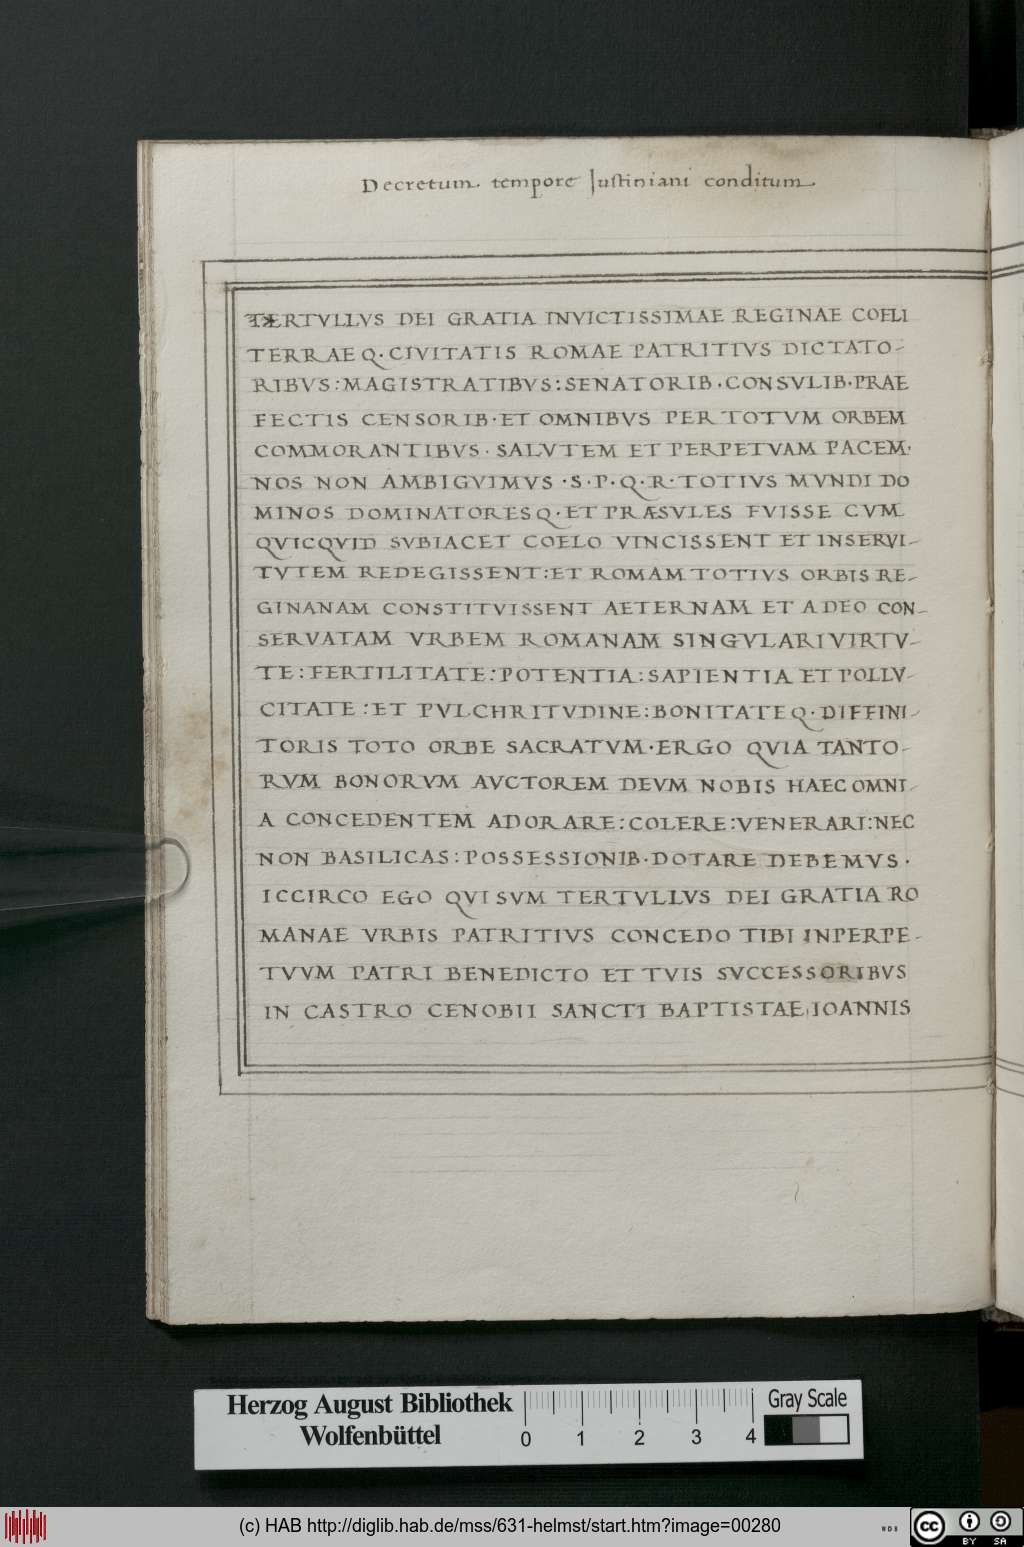 Decretum tempore Iustiniani conditum
TERTVLLVS DEI GRATIA INVICTISSIMAE REGINAE COELI
TERRAE Q·CIVITATIS ROMAE PATRITIVS DICTATO-
RIBVS:MAGISTRATIBVS:SENATORIB·CONSVLIB·PRAE
FECTIS CENSORIB·ET OMNIBVS PER TOTVM ORBEM
COMMORANTIBVS·SALVTEM ET PERPETVAM PACEM·
NOS NON AMBIGVIMVS·S·P·Q·R·TOTIVS MVNDI DO
MINOS DOMINATORESQ·ET PRÆSVLES FVISSE CVM
QVICQVID SVBIACET COELO VINCISSENT ET INSERVI-
TVTEM REDEGISSENT:ET ROMAM TOTIVS ORBIS RE-
GINANAM CONSTITVISSENT AETERNAM ET A DEO CON-
SERVATAM VRBEM ROMANAM SINGVLARI VIRTV-
TE:FERTILITATE:POTENTIA:SAPIENTIA ET POLLV-
CITATE:ET PVLCHRITVDINE:BONITATEQ·DIFFINI-
TORIS TOTO ORBE SACRATVM·ERGO QVIA TANTO-
RVM BONORVM AVCTOREM DEVM NOBIS HAEC OMNI-
A CONCEDENTEM ADORARE:COLERE:VENERARI:NEC
NON BASILICAS:POSSESSIONIB·DOTARE DEBEMVS·
ICCIRCO EGO QVI SVM TERTVLLVS DEI GRATIA RO
MANAE VRBIS PATRITIVS CONCEDO TIBI INPERPE-
TVVM PATRI BENEDICTO ET TVIS SVCCESSORIBVS
IN CASTRO CENOBII SANCTI BAPTISTAE IOANNIS
Herzog August Bibliothek
Wolfenbüttel
0 1 2 3 4
Gray Scale
(c) HAB http://diglib.hab.de/mss/631-helmst/start.htm?image=00280
WDB
cc BY SA